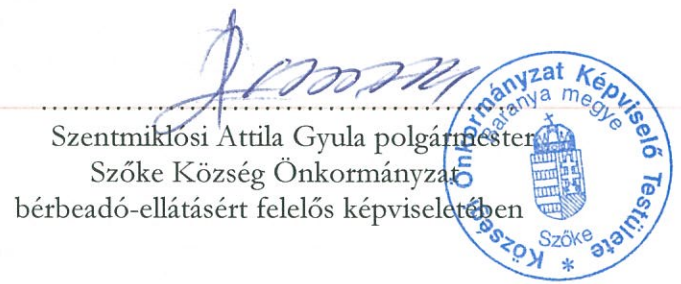 Szentmiklósi Attila Gyula polgármester
Szőke Község Önkormányzat
bérbeadó-ellátásért felelős képviseletében
Községi Önkormányzat Képviselő Testülete *
Baranya megye
Szőke